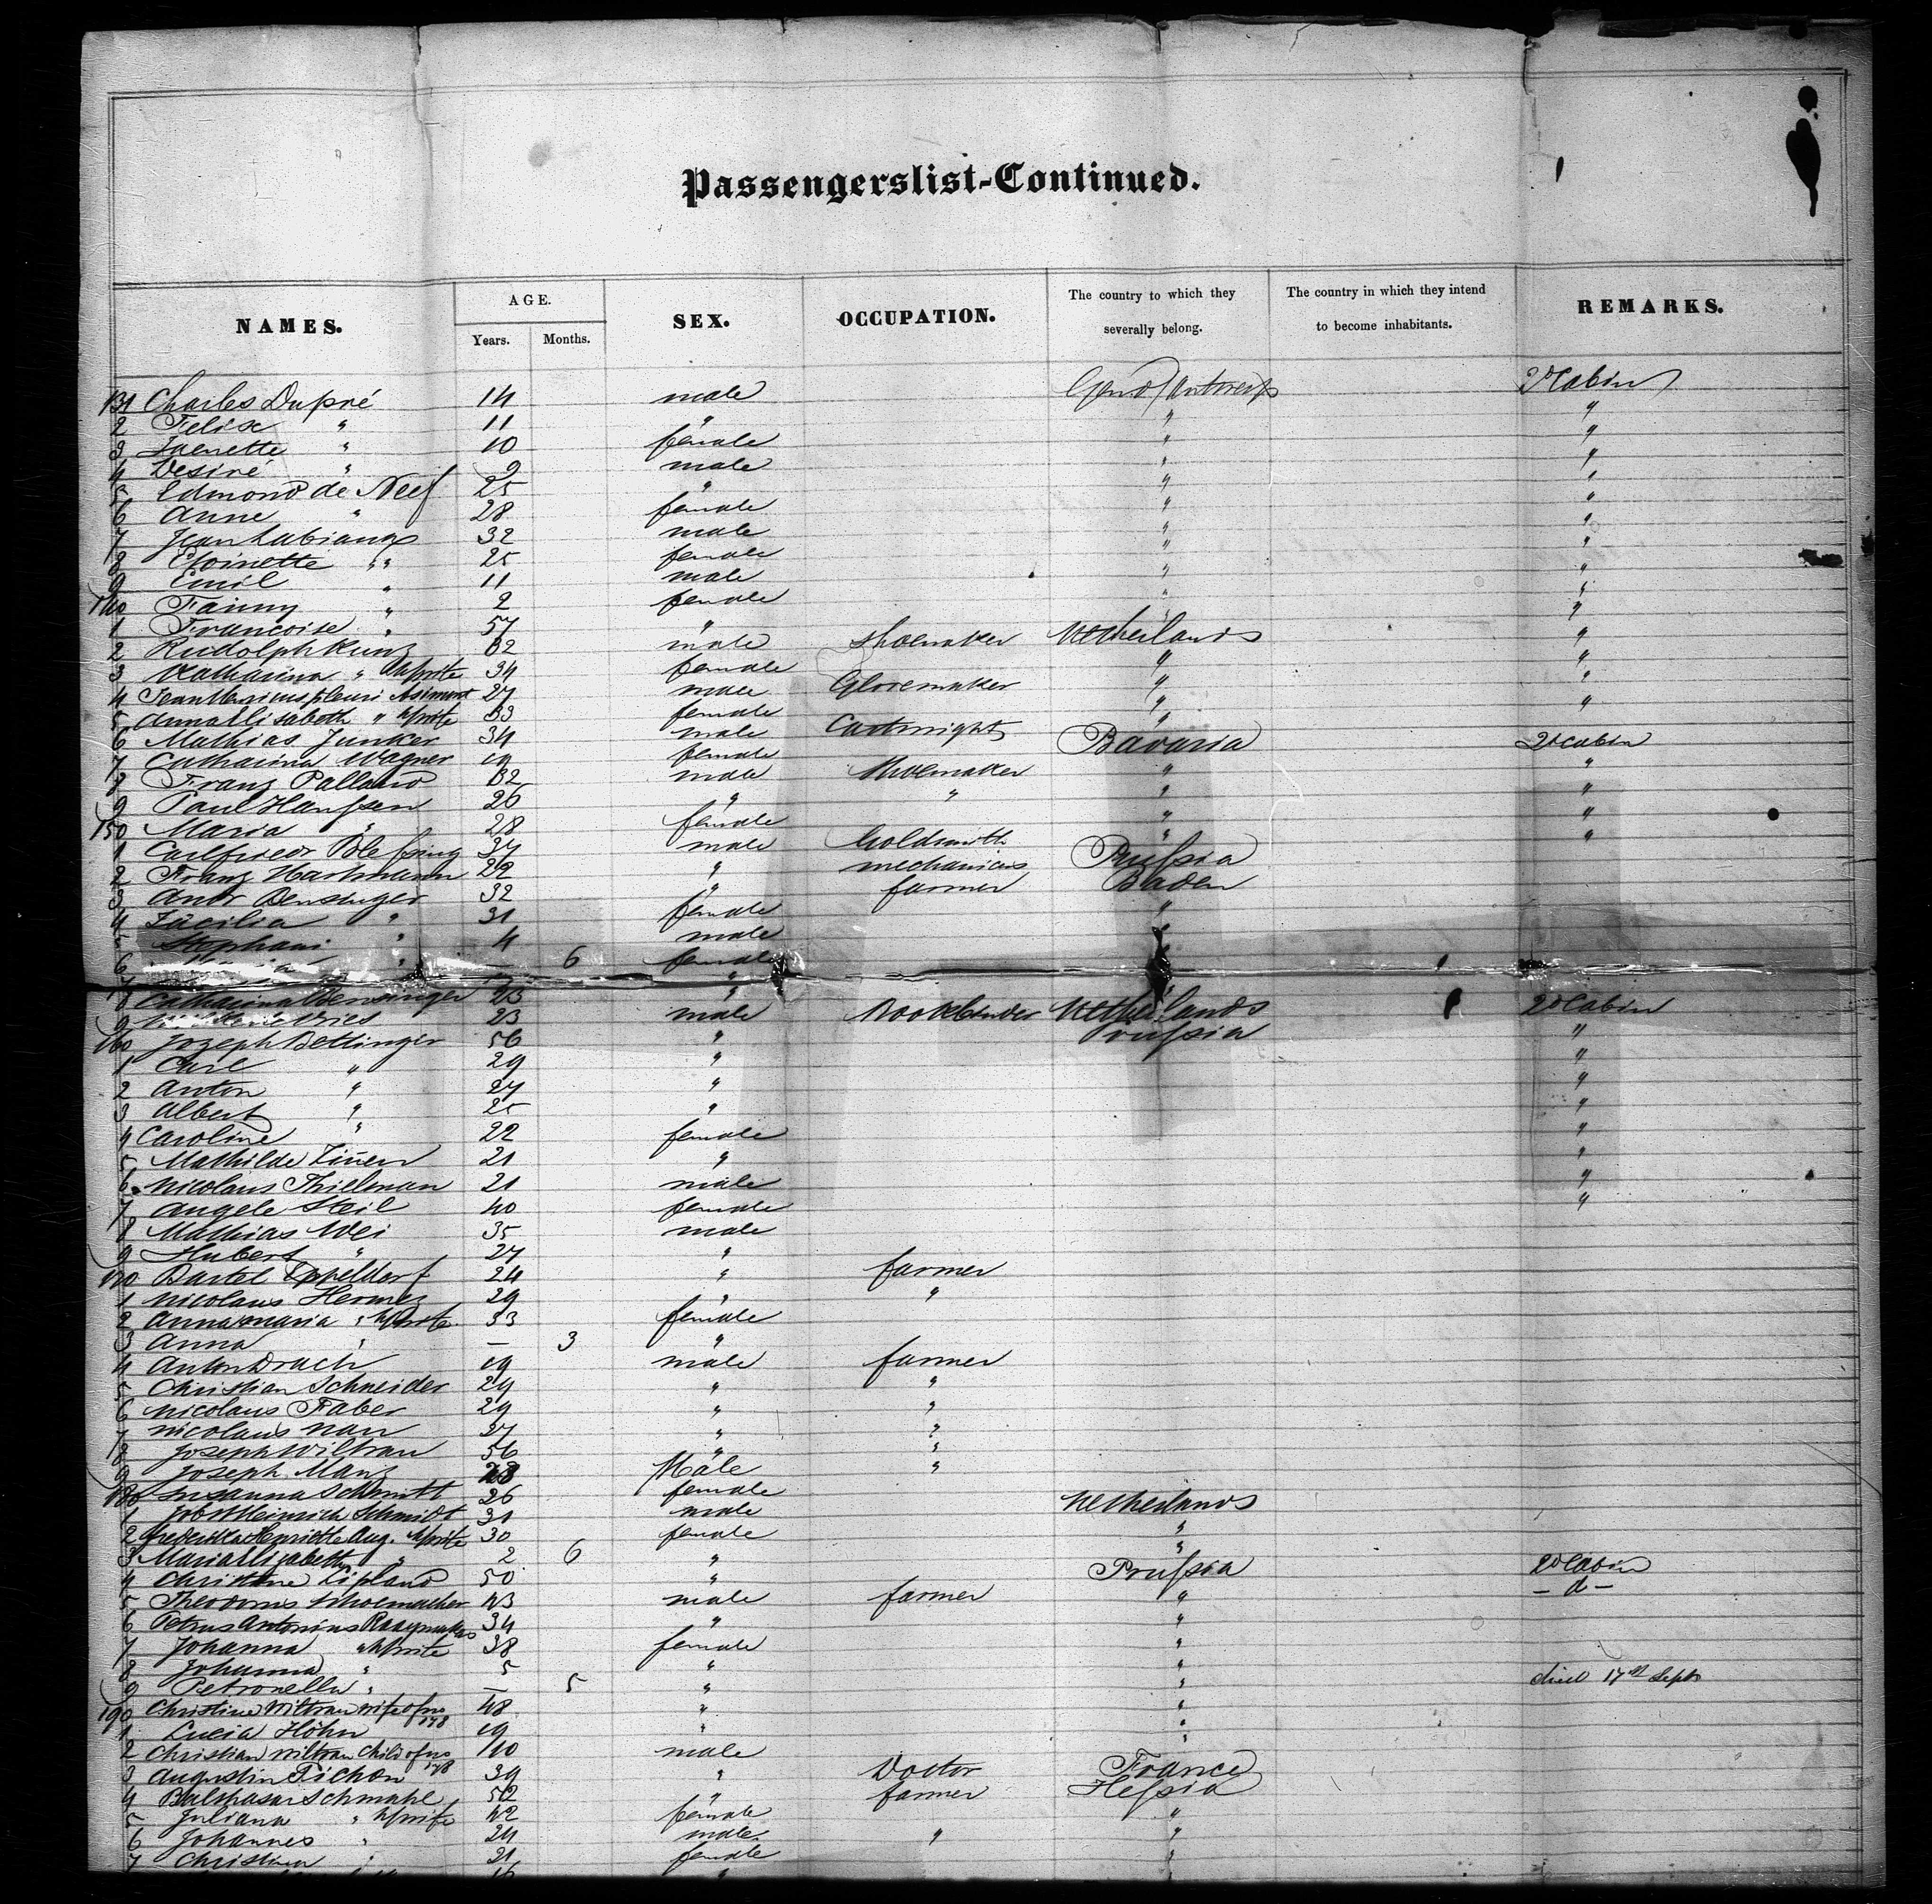 Passengerslist-Continued.
NAMES. AGE. Years. Months. SEX. OCCUPATION. The country to which they severally belong. The country in which they intend to become inhabitants. REMARKS.
131 Charles Dupré 14 male Antwerp 2d Cabin
2 Felix " 11 " " "
3 " 10 female " "
4 Desiré " 9 male " "
5 Edmond de Neef 25 " " "
6 Anne " 28 female " "
7 Jean 32 male " "
8 " 25 female " "
9 Emil " 11 male " "
140 Fanny " 2 female " "
1 Francoise " 57 " " "
2 Rudolph Kunz 32 male shoemaker Netherlands "
3 Katharina " Wife 34 female " "
4 27 male Glovemaker " "
5 Anna Elisabeth " Wife 33 female " "
6 Mathias Junker 34 male Cartwright Bavaria 2d Cabin
7 Catharina Wagner 19 female "
8 Franz Palland 32 male Shoemaker " "
9 Paul Hanssen 26 " " " "
150 Maria " 28 female " "
1 37 male Goldsmith " "
2 Franz Hartmann 22 " mechanicus Prussia
3 Andr Densinger 32 " farmer Baden
4 Zäcilia " 31 female "
5 Stephani " 4 male "
6 " 6 female
7 "
8 Catharina Densinger 23 "
9 Vries 23 male Bookbinder Netherlands 2d Cabin
160 Jozeph Bettinger 56 " Prussia "
1 Carl " 29 " "
2 Anton " 27 " "
3 Albert " 25 " "
4 Caroline " 22 female "
5 Mathilde 21 " "
6 Nicolaus Thielman 21 male "
7 Angele Steil 40 female "
8 Mathias Wei 35 male
9 Hubert " 27 "
170 Bartel 24 " farmer
1 Nicolaus Hermes 29 " "
2 Anna Maria " Wife 33 female
3 Anna " — 3 "
4 Anton Drach 19 male farmer
5 Christian Schneider 29 " "
6 Nicolaus Faber 29 " "
7 Nicolaus Nau 27 " "
18 Joseph Wiltran 56 " "
9 Joseph Manz 28 Male "
180 Susanna Schmitt 26 female
1 Jobst Heinrich Schmidt 31 male Netherlands
2 Frederikke Henriette Aug. Wife 30 female "
3 Maria Elizabeth " 2 6 " "
4 Christine Lipland 50 " Prussia 2d Cabin
5 Theodorus Schoemacher 43 male farmer " — d —
6 Petrus Antonius Raaymakers 34 " "
7 Johanna " Wife 38 female "
8 Johanna " 5 " "
9 Petronella " — 5 " " died 17th Sept
190 Christine Wiltran wife of no 178 48 " "
1 Lucia Höhn 19 " "
2 Christian Wiltran Child of no 178 10 male "
3 Augustin Pichon 39 " Doctor France
4 Balthasar Schmahl 52 " farmer Hessia
5 Juliana " Wife 42 female "
6 Johannes " 24 male " "
7 Christina " 21 female "
16 "